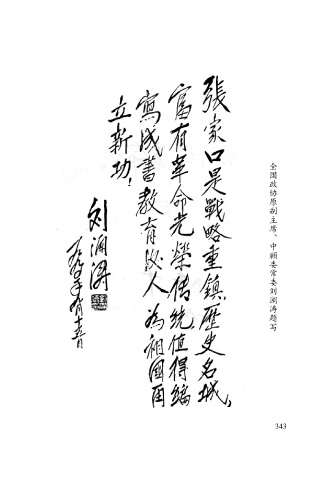 張家口是戰略重鎮,歷史名城,
富有革命光榮传统,值得编
寫成書教育後人為祖國再
立新功!
刘澜涛
一九九〇年八月十五日
全国政协原副主席、中顾委常委刘澜涛题写
343